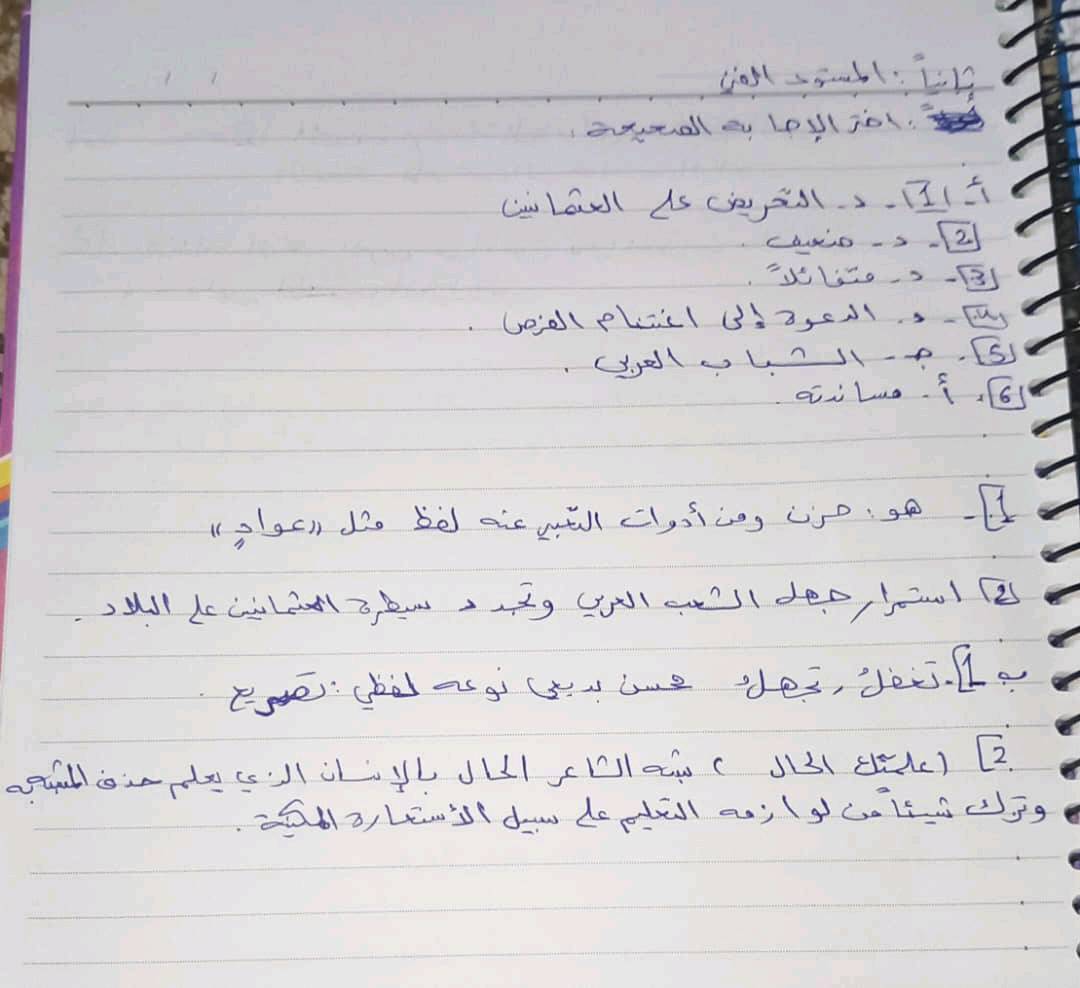 ثانياً: المستوى الفني
أولاً: اختر الإجابة الصحيحة.
أ- 1- د- التحريض على العثمانيين
2- د- ضعيف.
3- د- متفائلاً.
4- د. الدعوة إلى اغتنام الفرص.
5- جـ- الشباب العربي.
6- أ- مساندته.
1- هو: حزن ومن أدوات التعبير عنه لفظ مثل «عوادٍ»
2 استمرار جهل الشعب العربي وتجدد سيطرة العثمانيين على البلاد.
ب 1- تغفلُ، تجهلُ محسن بديعي نوعه لفظي: تصريع.
2 (علمتك الحال) شبه الشاعر الحال بالإنسان الذي يعلم حذف المشبه به
وترك شيئاً من لوازمه التعليم على سبيل الأستعارة المكنية.